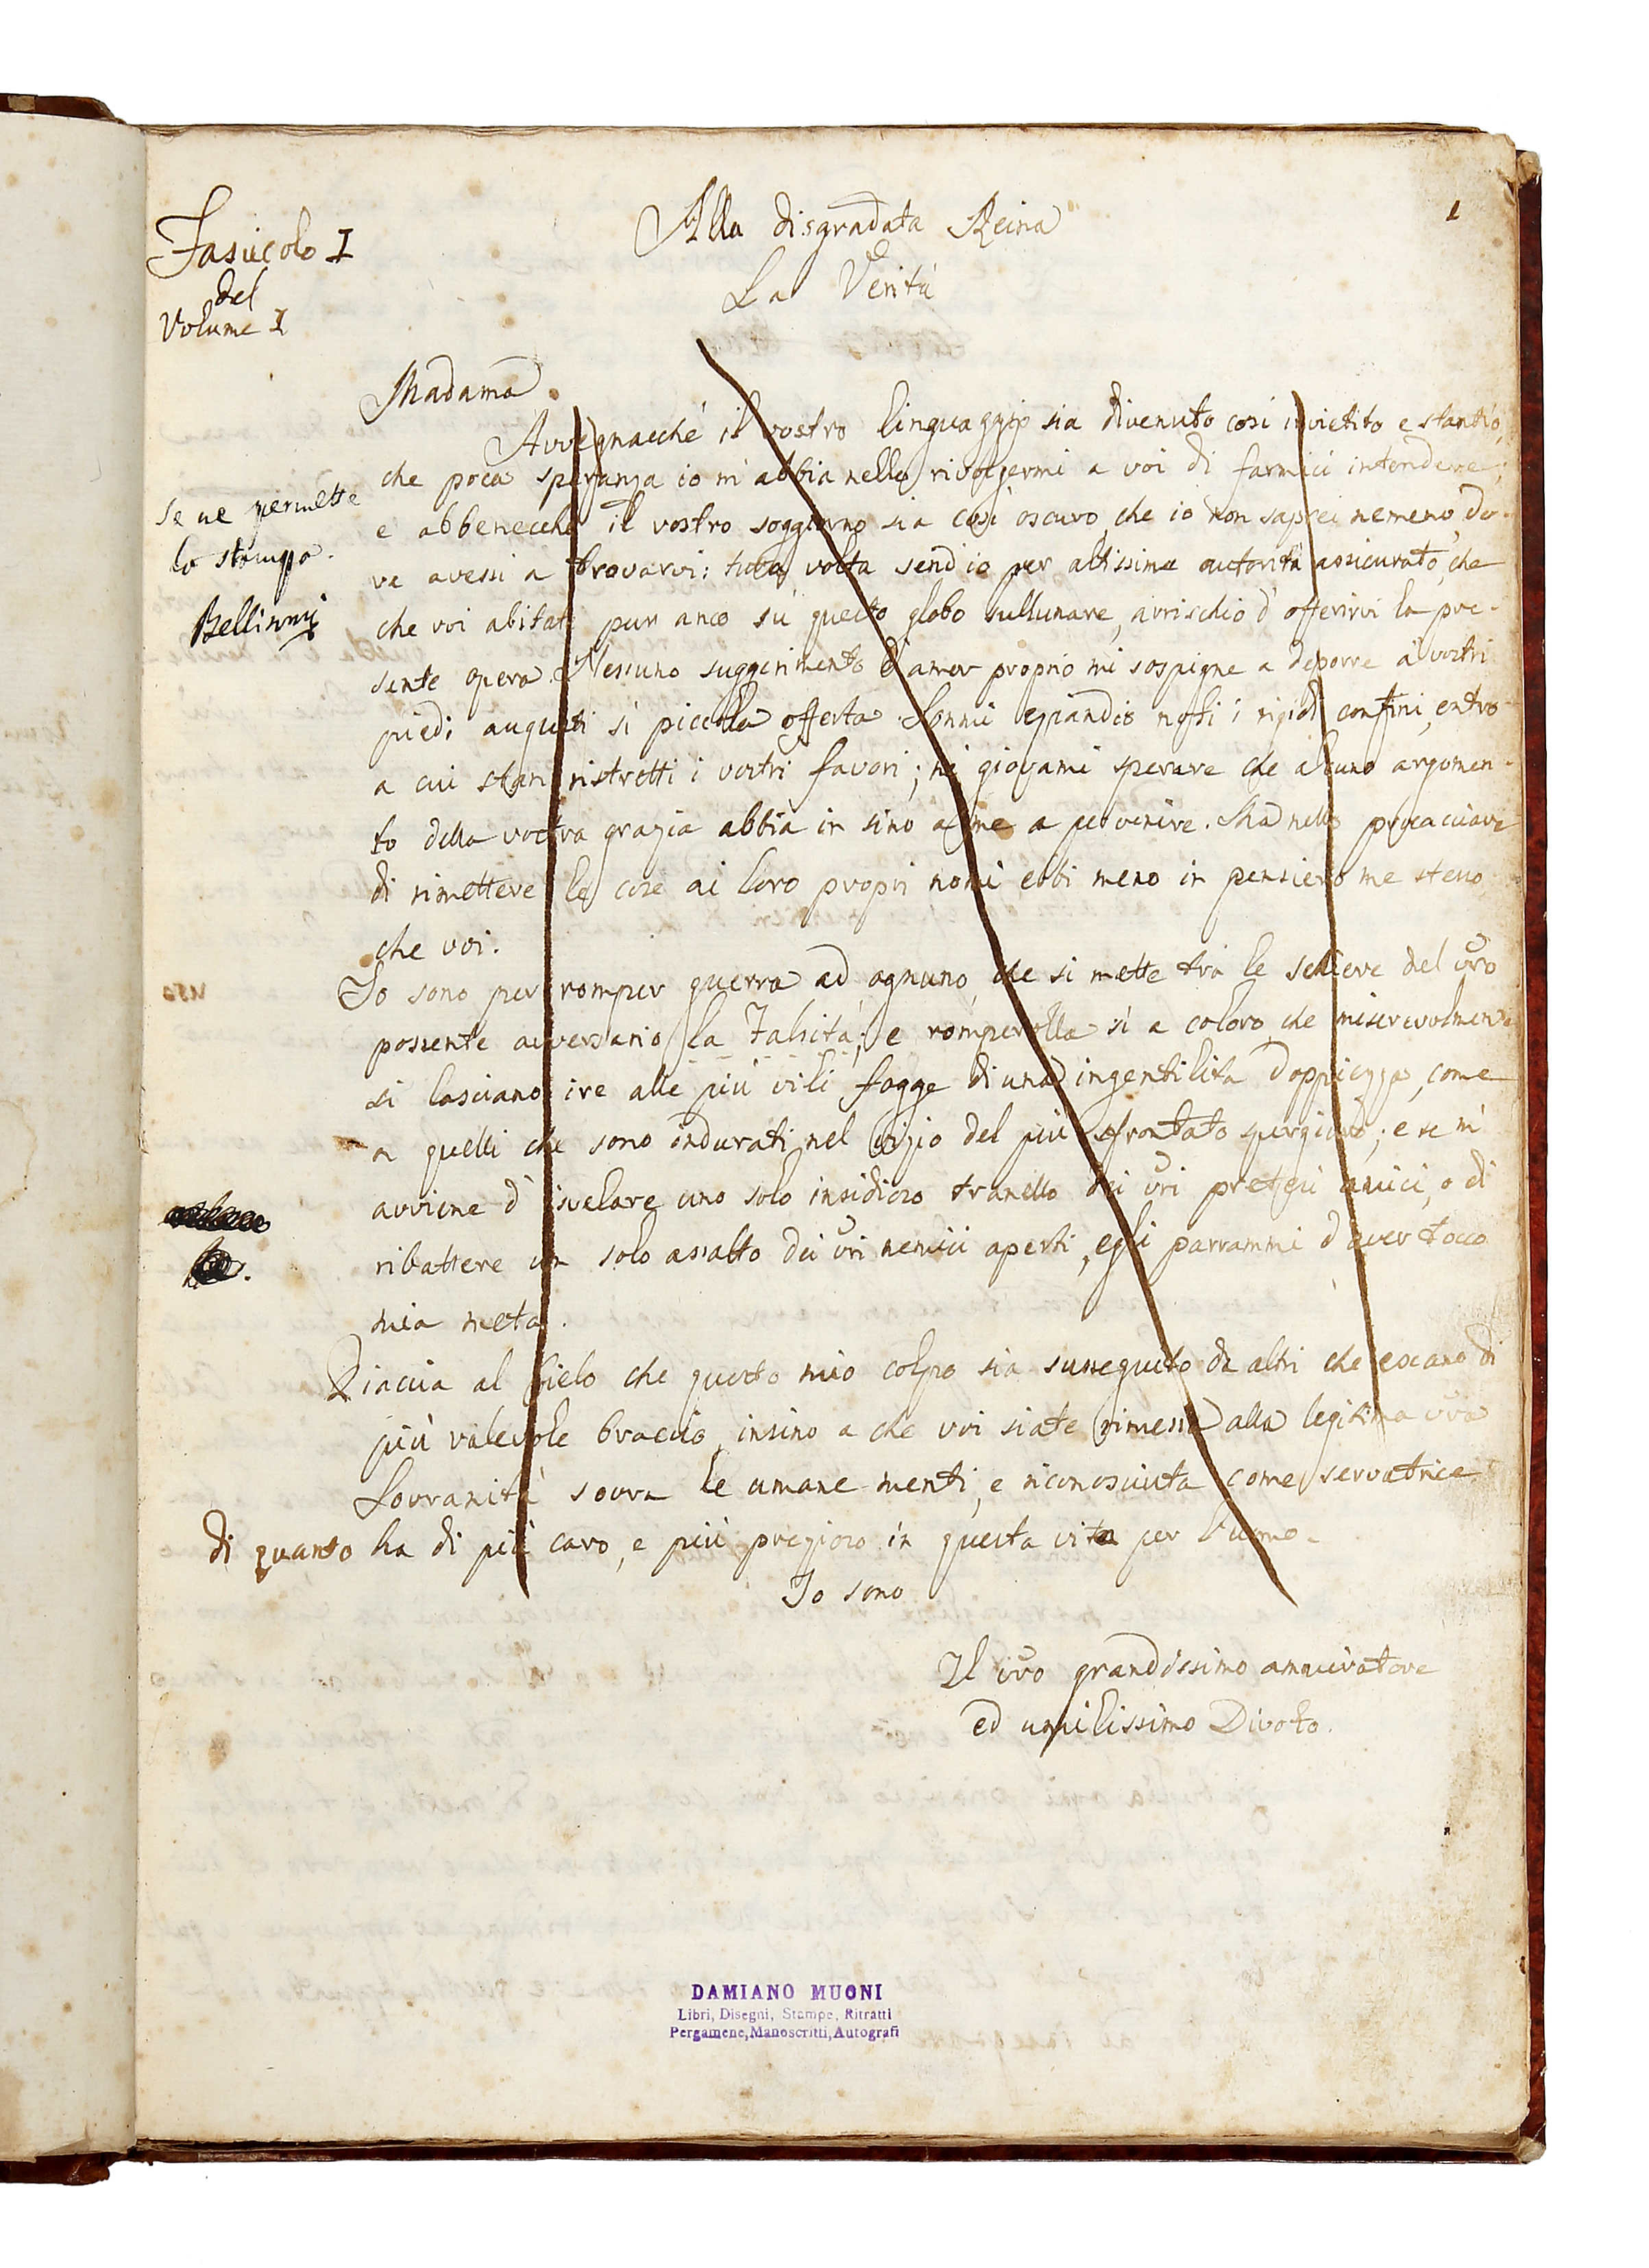 1
Alla disgradata Reina
La Verità
Fasiicolo I
del
Volume I
Madama
Avvegnacchè il vostro linguaggio sia divenuto così invietito e stantìo,
che poca speranza io m'abbia nello rivolgermi a voi di farmici intendere;
e abbenecchè il vostro soggiorno sia così oscuro, che io non saprei nemeno do-
ve avessi a trovarvi: tutta volta send'io per altissima autorità assicurato, che
che voi abitate pur anco su questo globo sullunare, arrischio d'offerirvi la pre-
sente opera. Nessuno suggerimento d'amor proprio mi sospigne a deporre a' vostri
piedi augusti sì piccola offerta. Sonmi eziandio noti i rigidi confini, entro
a cui stan ristretti i vostri favori; nè giovami sperare che alcuno argomen-
to della vostra grazia abbia in sino a me a pervenire. Ma nello procacciare
di rimettere le cose ai loro propri nomi ebbi meno in pensiero me stesso,
che voi.
Se ne permette
la stampa.
Bellisomi
Io sono per romper guerra ad ognuno, che si mette tra le schiere del vro
possente avversario la Falsità; e romperolla sì a coloro, che miserevolmente
si lasciano ire alle più vili fogge di una ingentilita doppiezza, come
a quelli che sono indurati nel vizio del più sfrontato spergiuro; e se m'
avviene d'isvelare uno solo insidioso tranello dei vri pretesi amici, o di
ribattere un solo assalto dei vri nemici aperti, egli parrammi d'aver tocco
mia meta.
Piaccia al Cielo che questo mio colpo sia susseguito da altri che escano di
più valevole braccio, insino a che voi siate rimessa alla legitima vra
Sovranità sovra le umane menti, e riconosciuta come servatrice
di quanto ha di più caro, e più pregioso in questa vita per l'uomo.
Io sono
Il vro grandissimo ammiratore
ed umilissimo Divoto.
DAMIANO MUONI
Libri, Disegni, Stampe, Ritratti
Pergamene, Manoscritti, Autografi